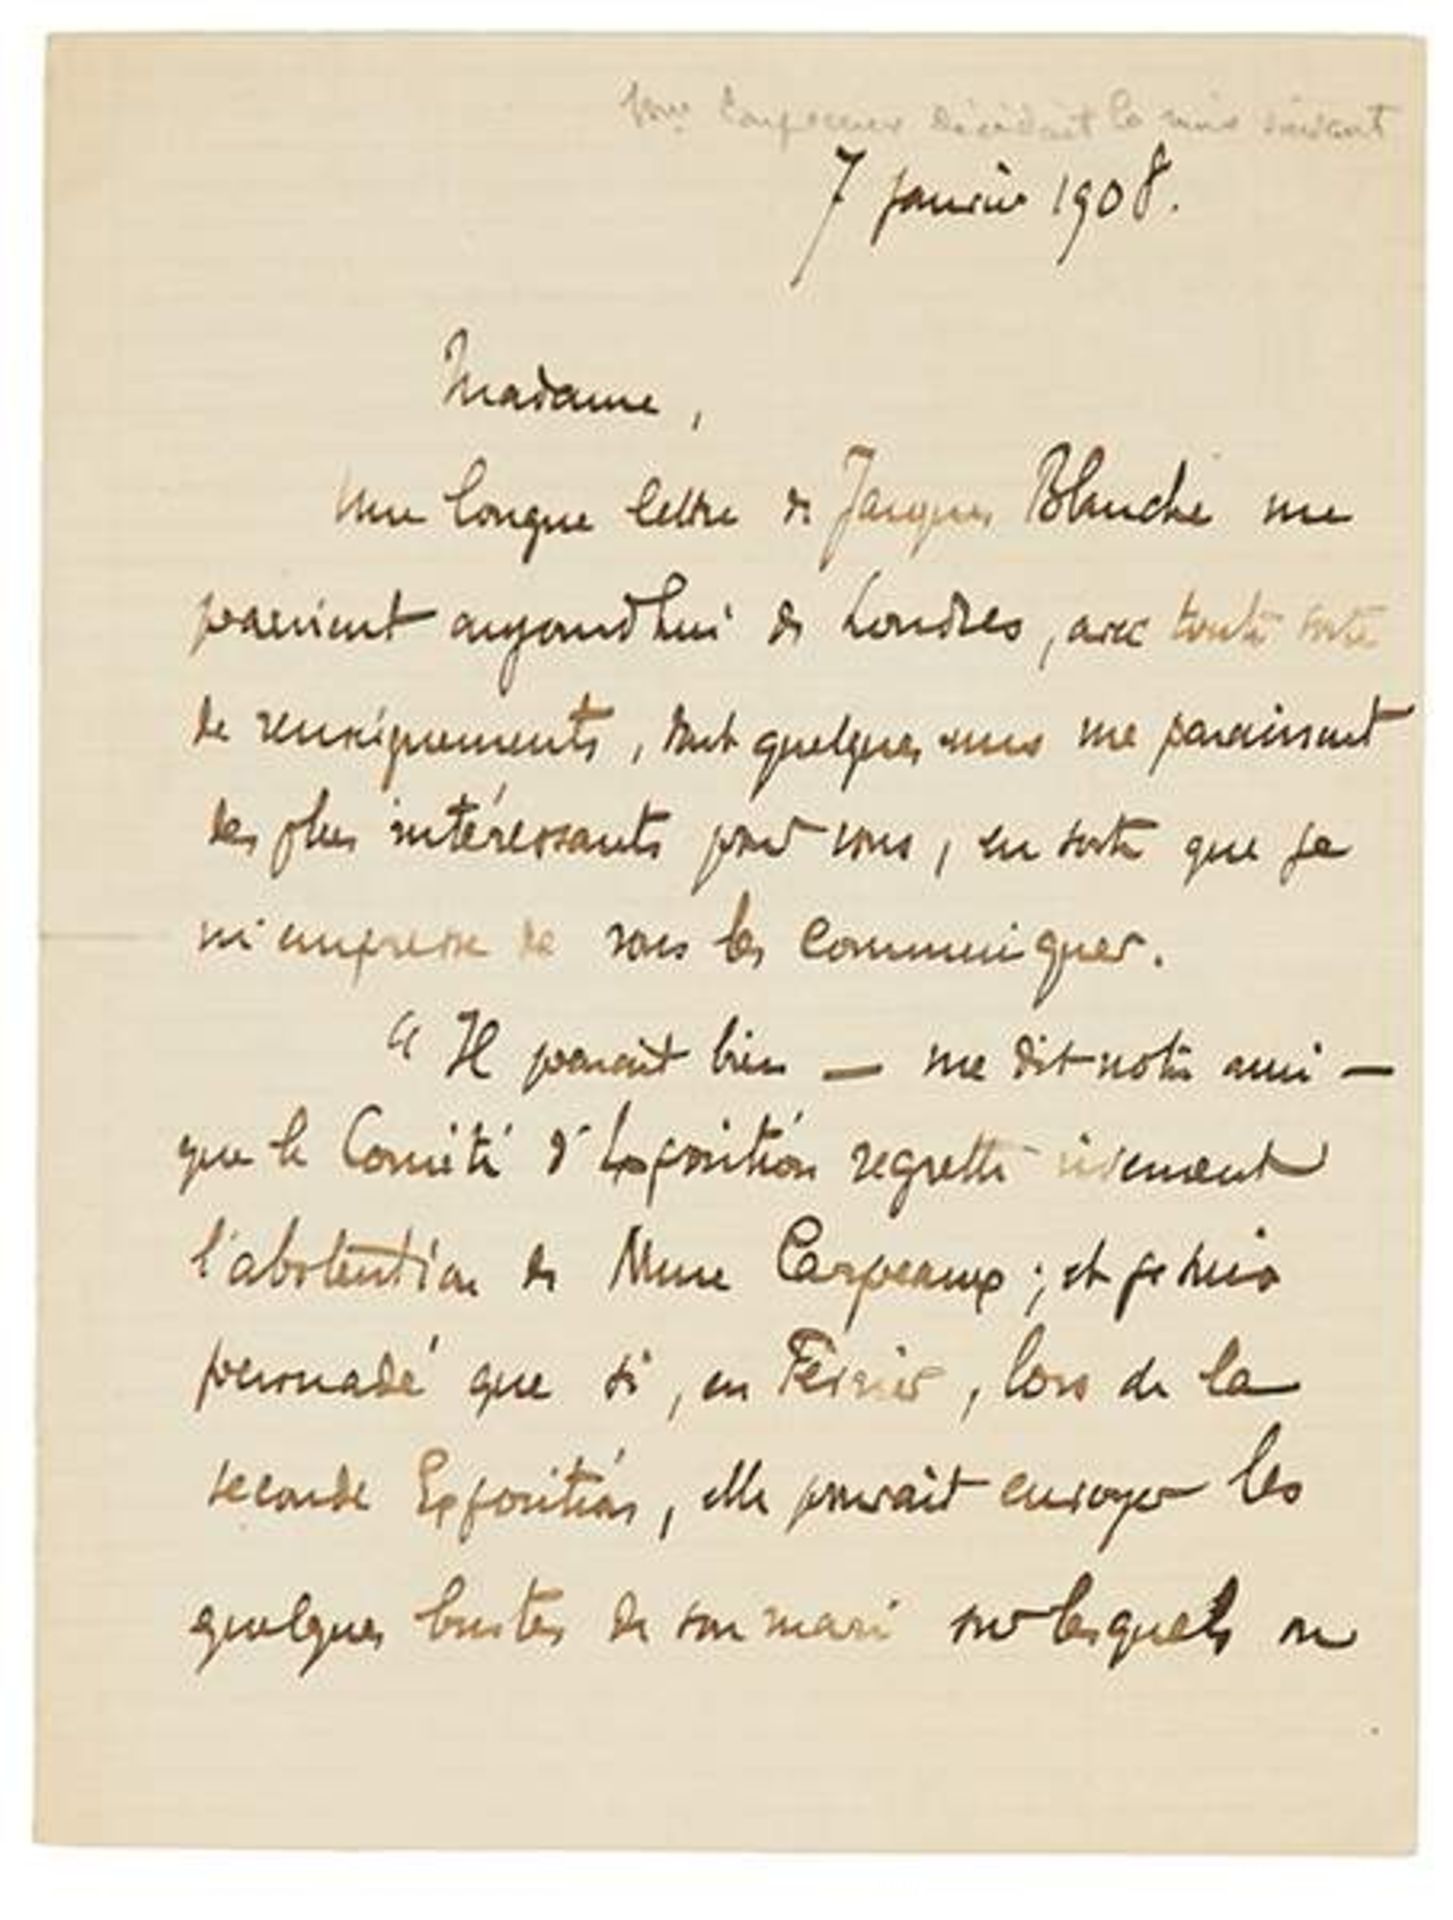 Mme Carpeaux décédait le mois suivant
7 janvier 1908.
Madame,
Une longue lettre de Jacques Blanche me
parvient aujourd'hui de Londres, avec toute sorte
de renseignements, dont quelques uns me paraissent
des plus intéressants pour vous, en sorte que je
m'empresse de vous les communiquer.
"Il parait bien — me dit notre ami —
que le Comité d'Exposition regrette vivement
l'abstention de Mme Carpeaux ; et je suis
persuadé que si, en Février, lors de la
seconde Exposition, elle pouvait envoyer les
quelques bustes de son mari sur lesquels on